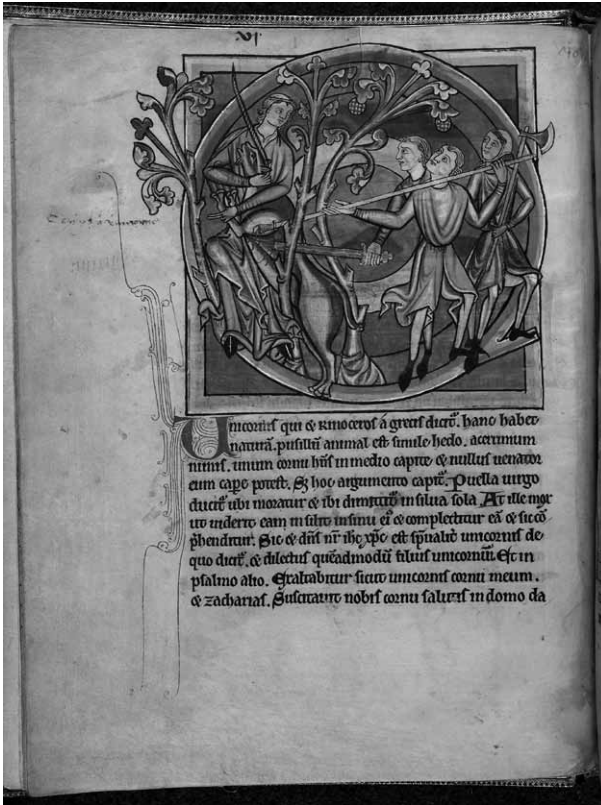 VI.
Unicornis qui & Rinoceros a grecis dicit̃. hanc habet
naturã. pusillũ animal est simile hedo. acerrimum
nimis. unum cornu hñs in medio capite & nullus uenator
eum cap̃e potest. Sʒ hoc argumento capit̃. Puella uirgo
ducit̃ ubi moratur & ibi dimittit̃ in silua sola At ille mox
ut uiderit eam insilit in sinũ ei⁹ & complectitur eã & sic cõ
p̃henditur. Sic & dñs nr̃ ihc̃ xp̃c est sp̃ualit̃ unicornis de
quo dicit̃. & dilectus quẽadmodũ filius unicorniũ. Et in
psalmo alio. Exaltabitur sicut unicornis cornu meum.
& zacharias. Suscitauit nobis cornu salutis in domo da